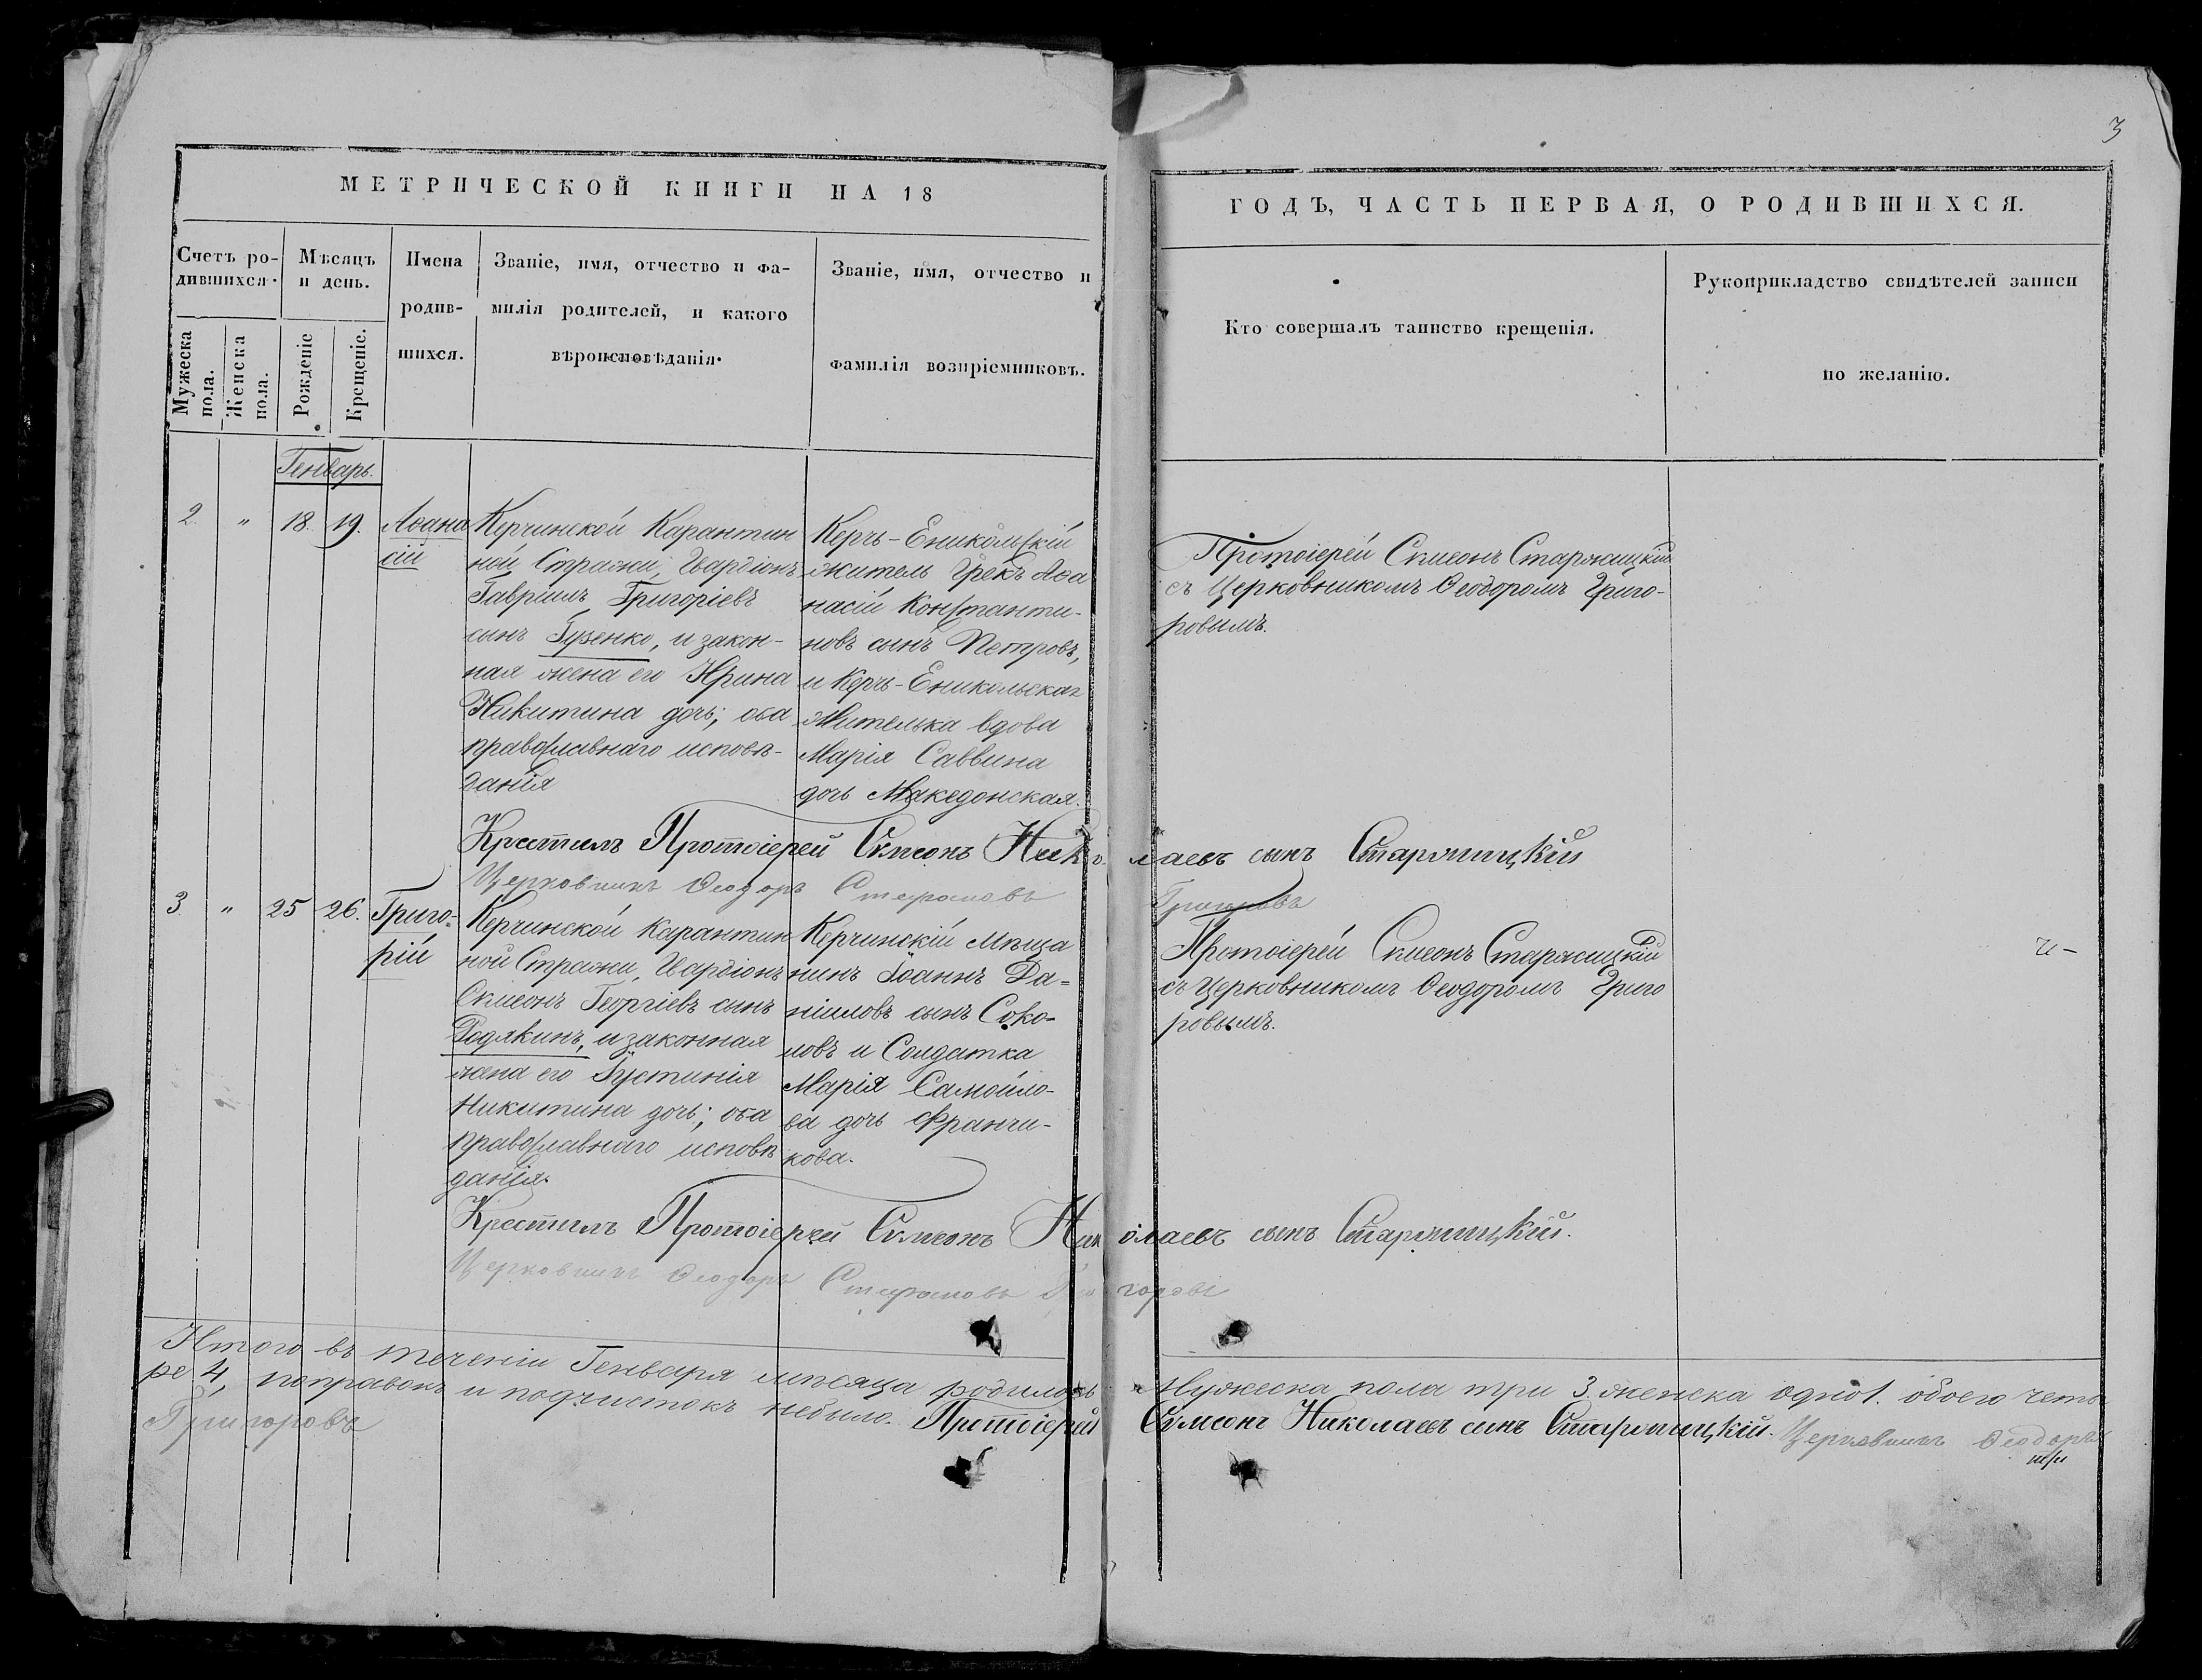 3
МЕТРИЧЕСКОЙ КНИГИ НА 18
ГОДЪ, ЧАСТЬ ПЕРВАЯ, О РОДИВШИХСЯ.
Счетъ ро-
дившихся.
Мужеска
пола.
Женска
пола.
Мѣсяцъ
и день.
Рожденіе
Крещеніе.
Имена
родив-
шихся.
Званіе, имя, отчество и фа-
милія родителей, и какого
вѣроисповѣданія.
Званіе, имя, отчество и
фамилія воспріемниковъ.
Кто совершалъ таинство крещенія.
Рукоприкладство свидѣтелей записи
по желанію.
Генварь.
2. " 18. 19.
Аѳана
сій
Керчинской Карантин
ной Стражи, Гвардіонъ
Гавріилъ Григоріевъ
сынъ Гузенко, и закон-
ная жена его Ирина
Никитина дочь; оба
православнаго исповѣ-
данія
Керчь-Еникольскій
житель Грекъ Аѳа
насій Константи-
новъ сынъ Петровъ,
и Керчь-Еникольская
Жителька вдова
Марія Саввина
дочь Македонская.
Протоіерей Сѵмеонъ Старжицкій
съ Церковникомъ Ѳеодоромъ Григо-
ровымъ.
Крестилъ Протоіерей Сѵмеонъ Николаевъ сынъ Старжицкій
Церковникъ Ѳеодоръ Стефановъ Григоровъ
3 " 25 26.
Григо-
рій
Керчинской Карантин
ной Стражи, Гвардіонъ
Сѵмеонъ Георгіевъ сынъ
Редякинъ, и законная
жена его Іустинія
Никитина дочь; оба
православнаго исповѣ
данія.
Керчинскій Мѣща
нинъ Іоаннъ Да-
ніиловъ сынъ Соко-
ловъ и Солдатка
Марія Самойло-
ва дочь Франчи-
кова.
Протоіерей Сѵмеонъ Старжицкій
съ Церковникомъ Ѳеодоромъ Григо
ровымъ.
и-
Крестилъ Протоіерей Сѵмеонъ Николаевъ сынъ Старжицкій.
Церковникъ Ѳеодоръ Стефановъ Григоровъ
Итого въ теченіи Генваря мѣсяца родилось Мужеска пола три 3. женска одно 1. обоего четы
ре 4, поправокъ и подчистокъ небыло. Протоіерей Сѵмеонъ Николаевъ сынъ Старжицкій. Церковникъ Ѳеодоръ
Григоровъ